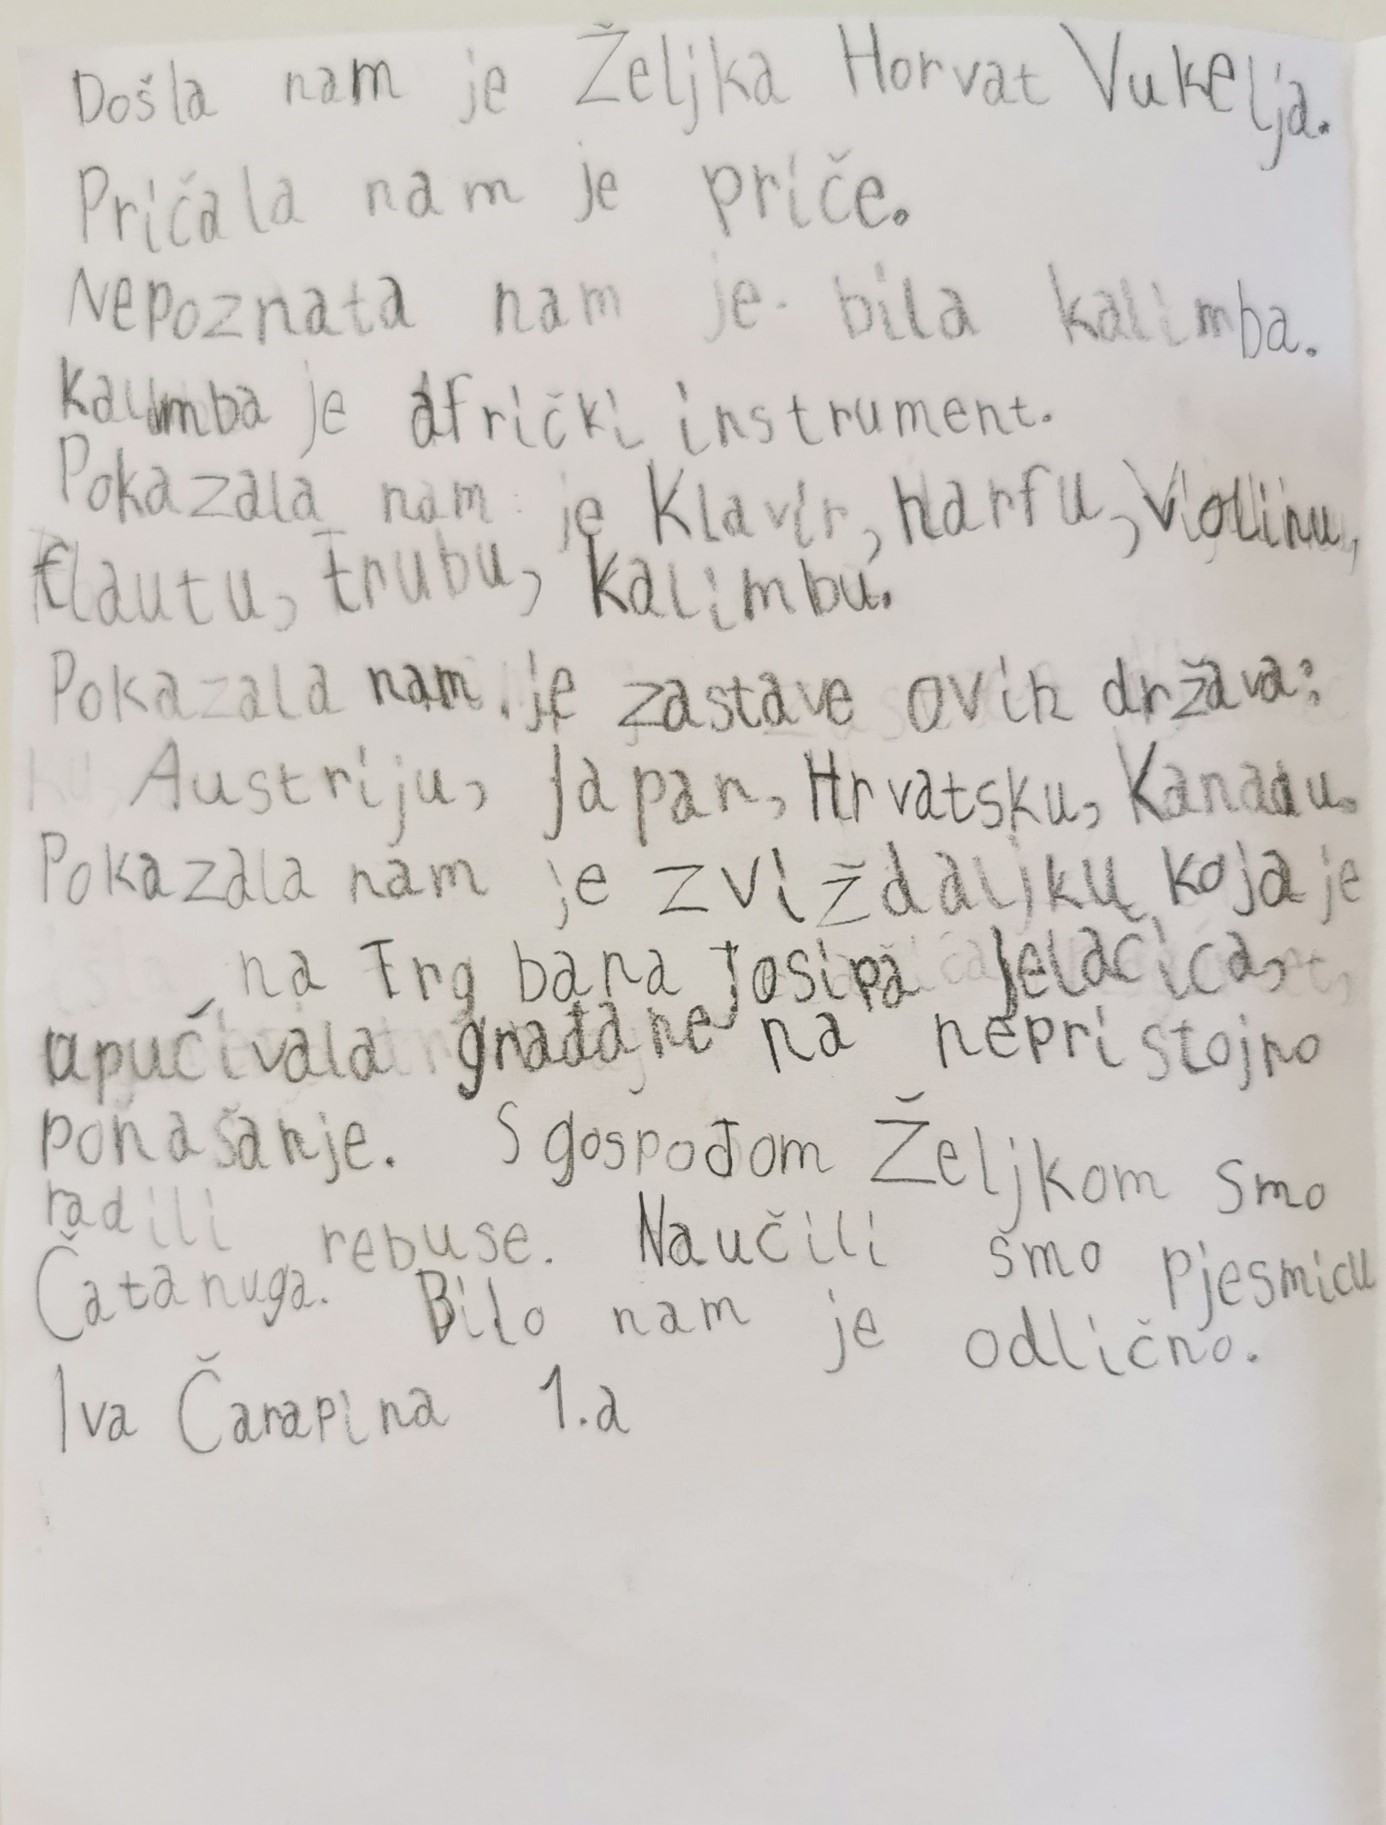 Došla nam je Željka Horvat Vukelja.
Pričala nam je priče.
Nepoznata nam je bila kalimba.
kalimba je afrički instrument.
Pokazala nam je klavir, harfu, violinu,
flautu, trubu, kalimbu.
Pokazala nam je zastave ovih država:
Austriju, Japan, Hrvatsku, Kanadu.
Pokazala nam je zviždaljku koja je
na Trg bana Josipa Jelačića,
upučivala građane na nepristojno
ponašanje. S gospođom Željkom smo
radili rebuse. Naučili smo pjesmicu
Čatanuga. Bilo nam je odlično.
Iva Čarapina 1.a